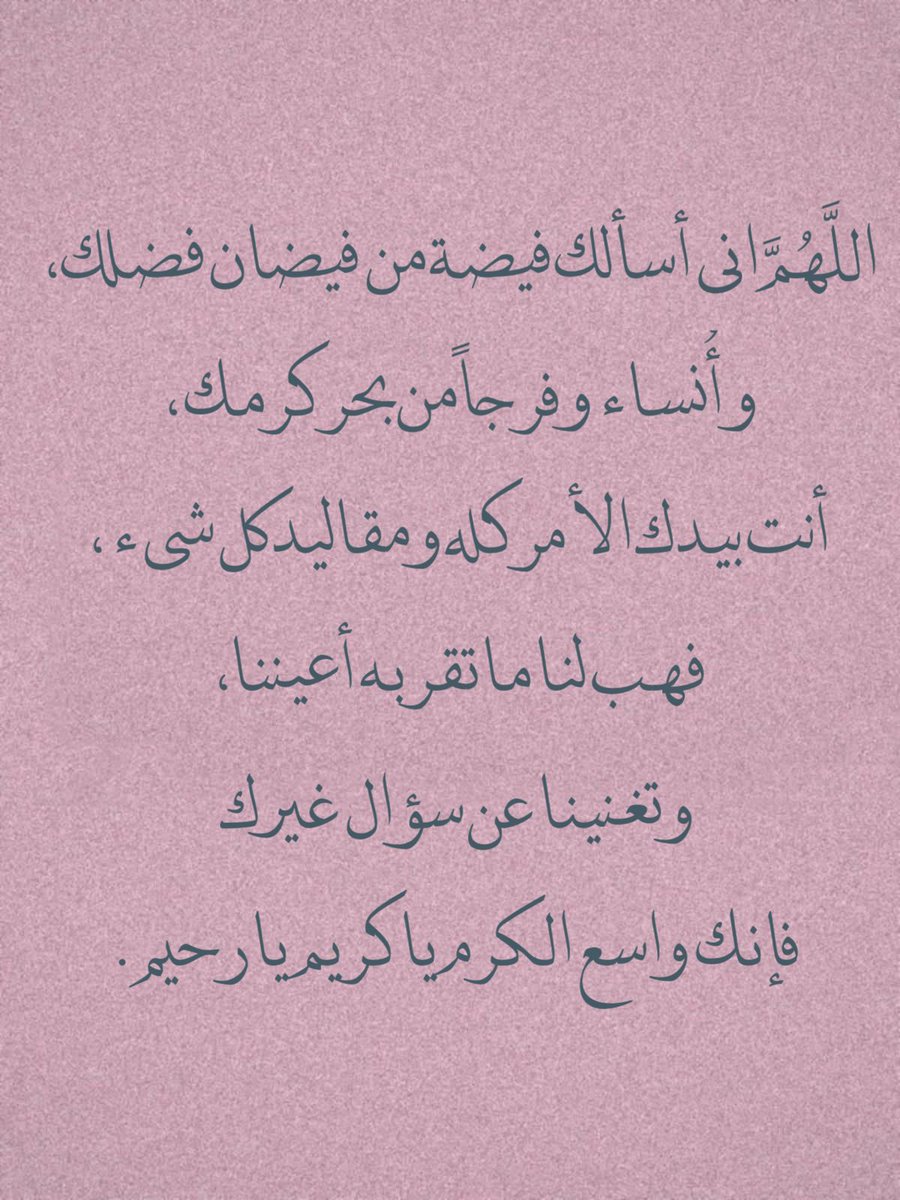 اللَّهُمَّ انى أسألك فيضة من فيضان فضلك،
وأُنساء وفرجاً من بحر كرمك،
أنت بيدك الأمر كله ومقاليد كل شىء،
فهب لنا ما تقر به أعيننا،
وتغنينا عن سؤال غيرك
فإنك واسع الكرم يا كريم يا رحيم.